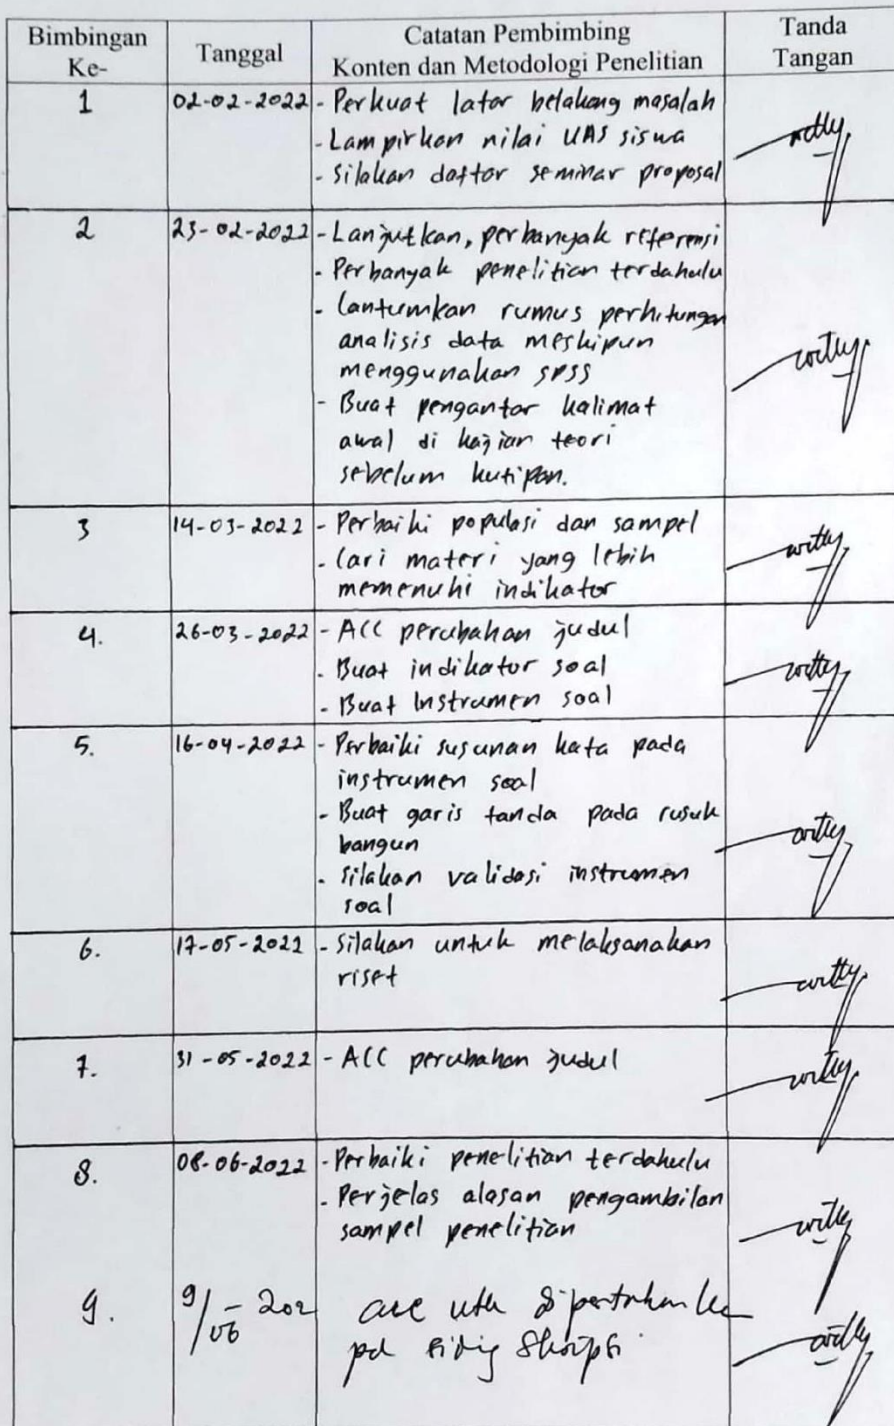 Bimbingan Ke-
Tanggal
Catatan Pembimbing
Konten dan Metodologi Penelitian
Tanda Tangan
1
02-02-2022
- Perkuat latar belakang masalah
- Lampirkan nilai UAS siswa
- Silakan daftar seminar proposal
2
23-02-2022
- Lanjutkan, perbanyak referensi
- Perbanyak penelitian terdahulu
- Cantumkan rumus perhitungan
analisis data meskipun
menggunakan SPSS
- Buat pengantar kalimat
awal di kajian teori
sebelum kutipan.
3
14-03-2022
- Perbaiki populasi dan sampel
- Cari materi yang lebih
memenuhi indikator
4.
26-03-2022
- ACC perubahan judul
- Buat indikator soal
- Buat Instrumen soal
5.
16-04-2022
- Perbaiki susunan kata pada
instrumen soal
- Buat garis tanda pada rusuk
bangun
- Silakan validasi instrumen
soal
6.
17-05-2022
- Silakan untuk melaksanakan
riset
7.
31-05-2022
- ACC perubahan judul
8.
08-06-2022
- Perbaiki penelitian terdahulu
- Perjelas alasan pengambilan
sampel penelitian
9.
9/06 202
acc utk
pd sidig Skripsi